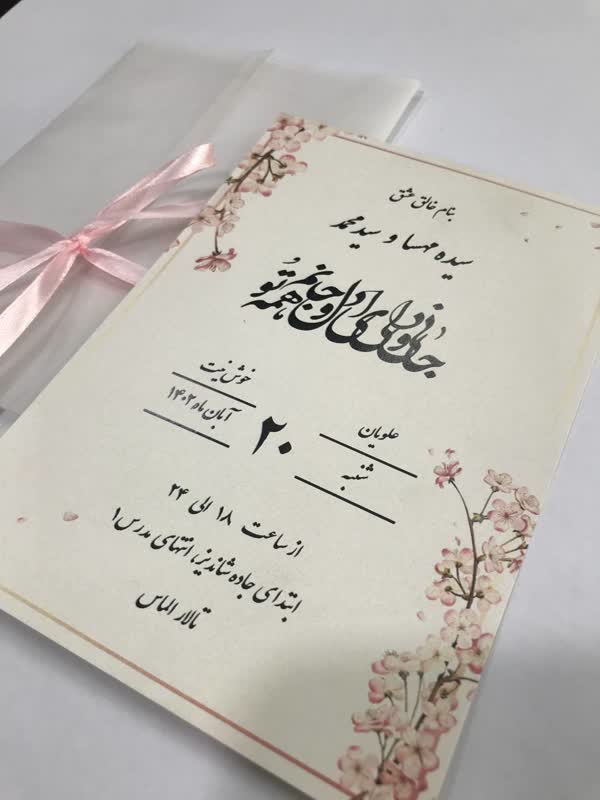 بنام خالق عشق
سیده مهسا و سید محمد
جانا تویی ای دل و جانم همه تو
علویان خوش نیت
شنبه ۲۰ آبان ماه ۱۴۰۲
از ساعت ۱۸ الی ۲۴
ابتدای جاده شاندیز، انتهای مدرس ۱
تالار الماس